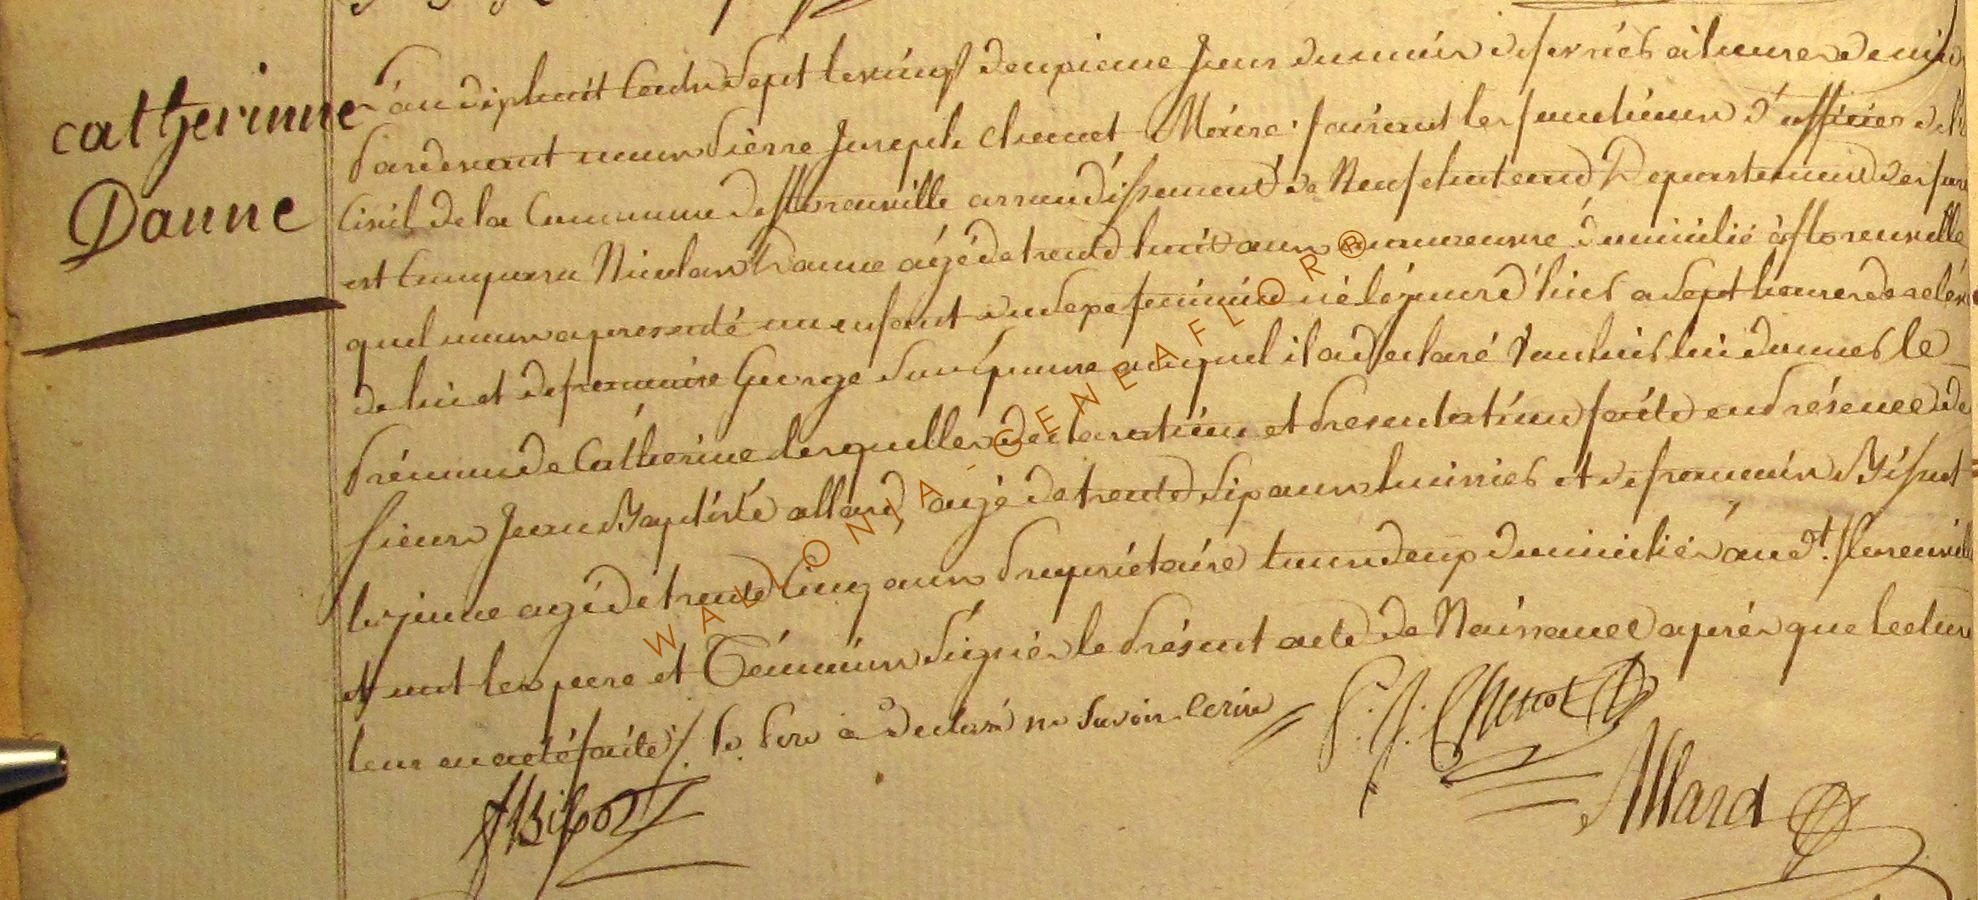 catherinne
Danne
L'an dixhuit cent sept le vingt deuxieme jour du mois de fevrier à l'heure de midi
Pardevant nous Pierre Joseph Chenot Maire faisant les fonctions d'officier de l'
Civil de la Commune de florenville arrondissement de Neufchateau Departement des for
est comparu Nicolas Danne agé de trente huit ans manoeuvre domicilié à florenville
quel nous a presenté un enfant du sexe feminin né le jour d'hier a sept heures de relevé
de lui et de francoise George son épouse auquel il a declaré vouloir lui donner le
Prénom de Catherine lesquelles declaration et Presentation faite en Présence de
sieurs Jean Baptiste allard agé de trente six ans huissier et de francois Bissot
le jeune agé de trente cinq ans Propriétaire tous deux domiciliés au dt. florenville
et ont les pere et Témoins signés le Présent acte de Naissance après que lecture
leur en a été faite /. le Pere a declaré ne savoir ecrire
P. J. Chenot
Allard
f Bissot
WALLONIA-GENEAFLOR®